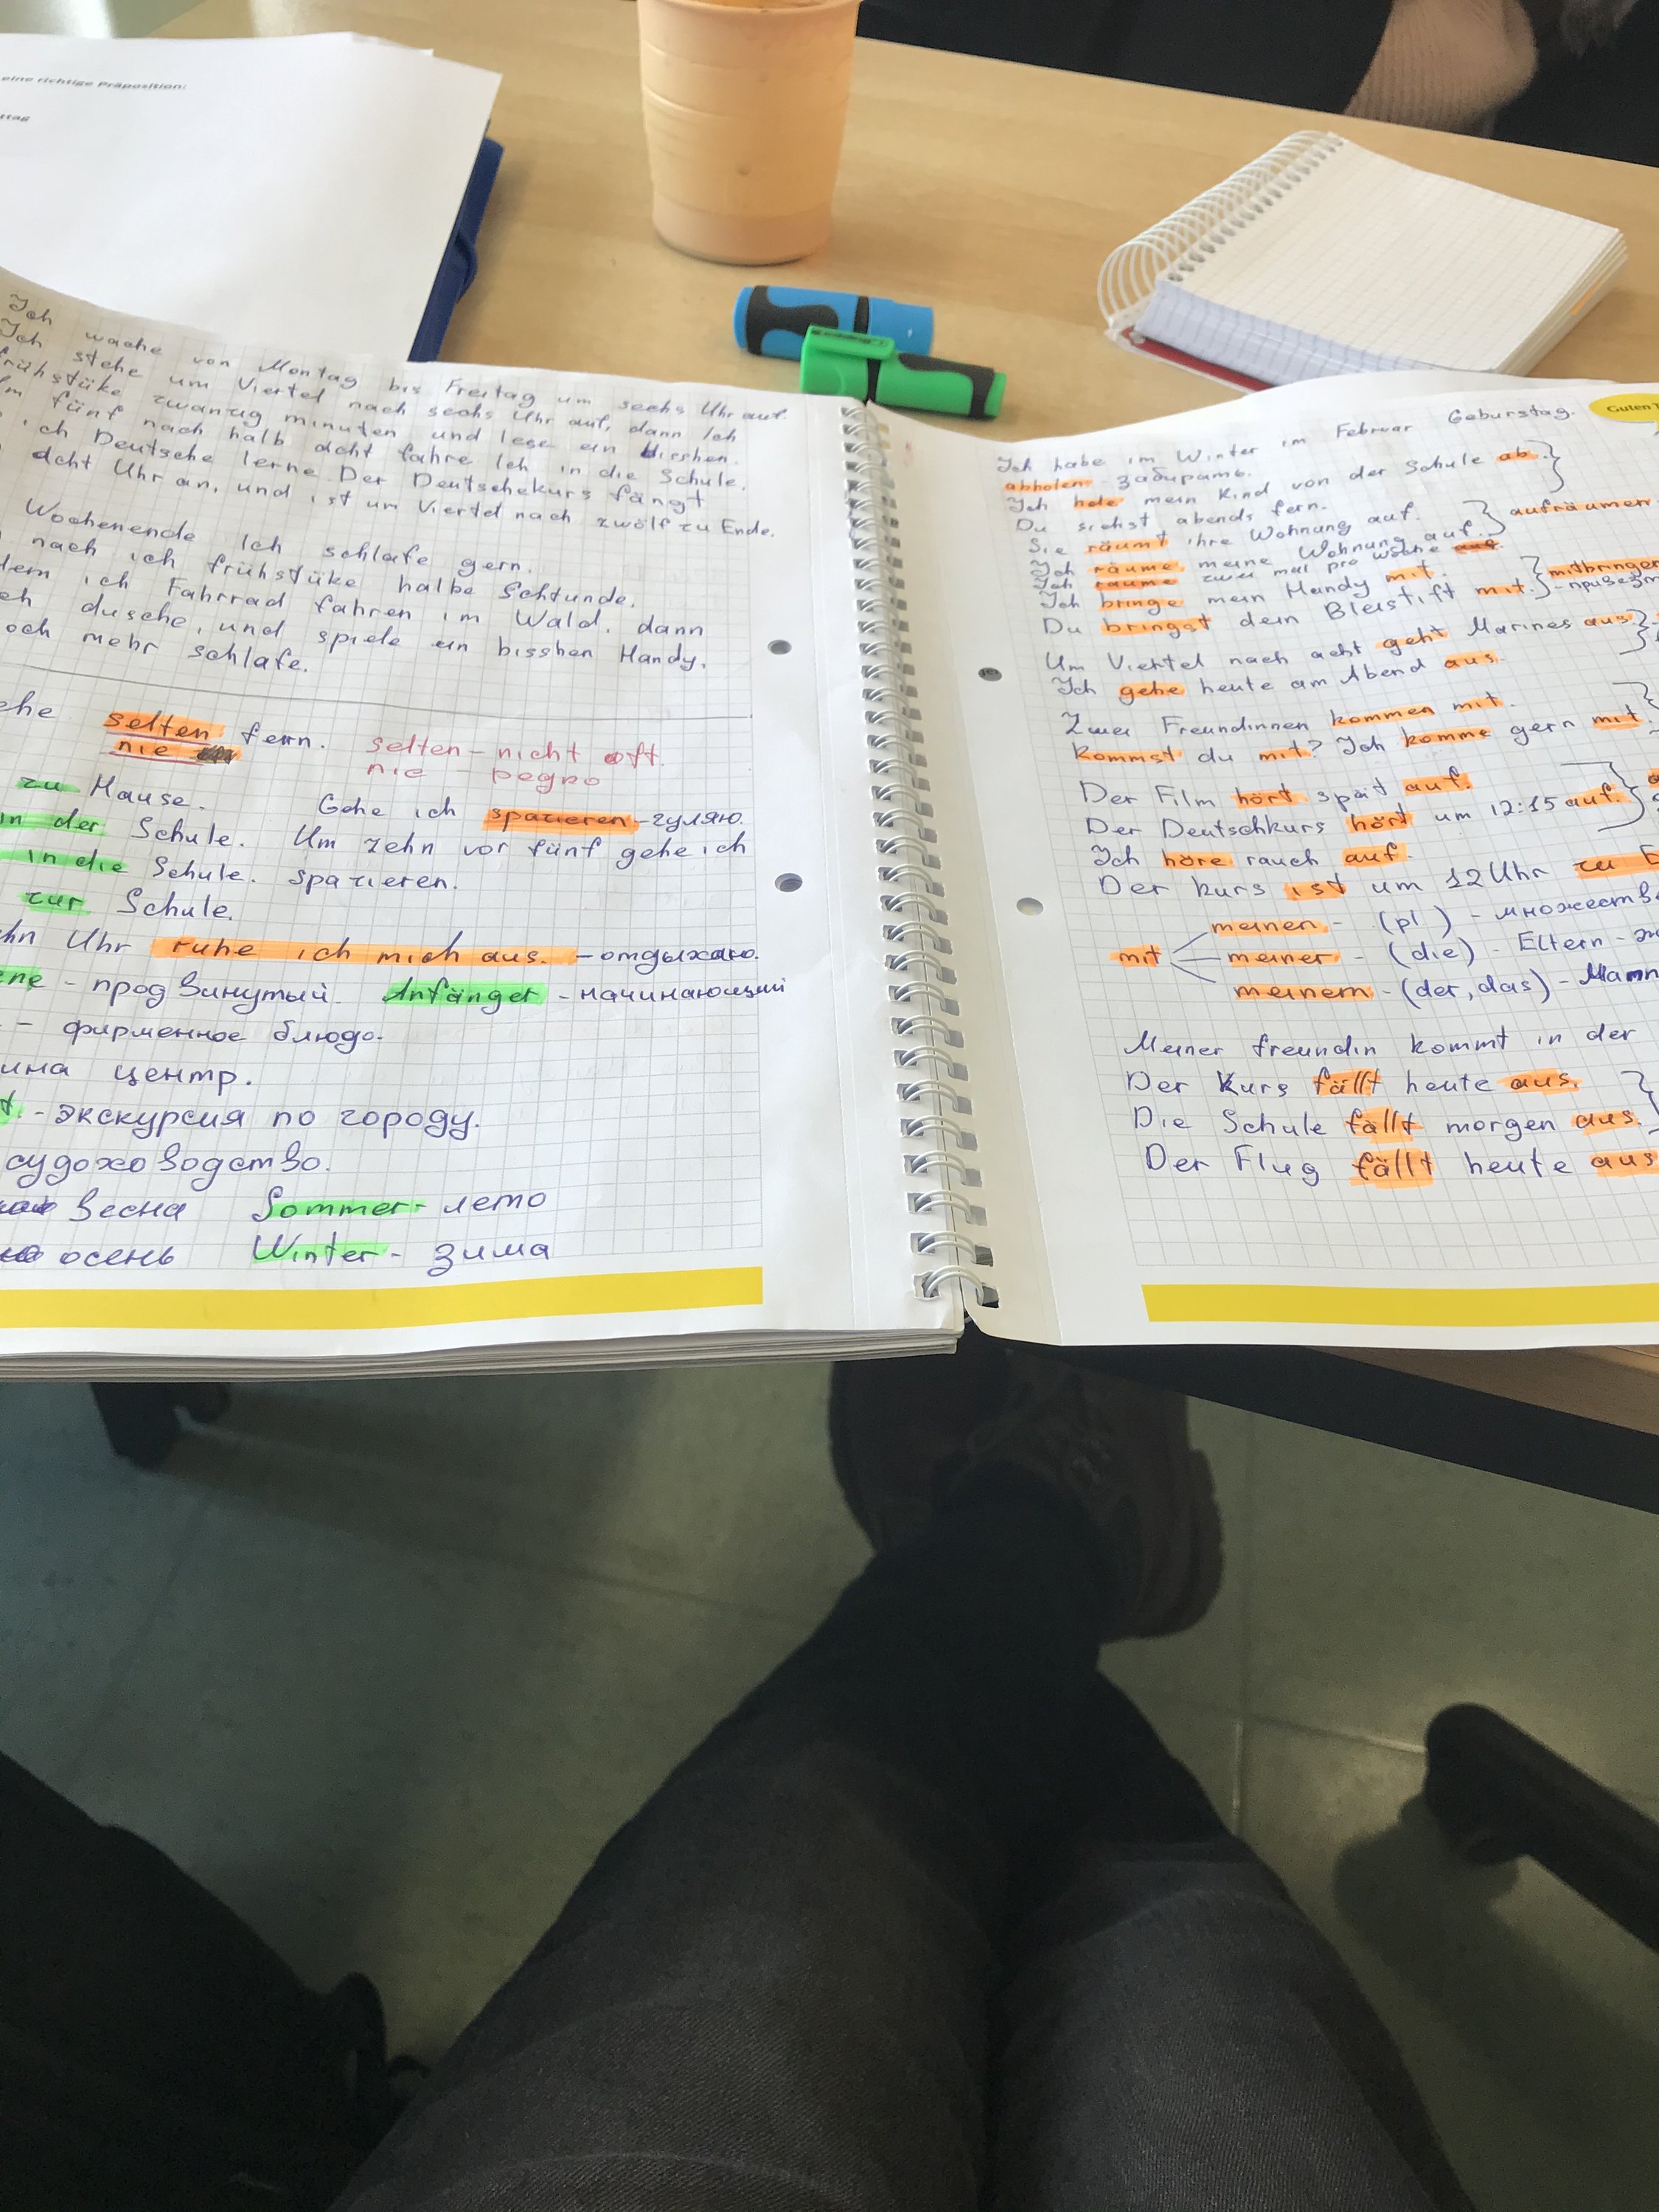 eine richtige Präposition:
ttag
Ich wache von Montag bis Freitag um sechs Uhr auf.
Ich stehe um Viertel nach sechs Uhr auf, dann Ich
frühstüke zwanzig minuten und lese ein bisshen.
Um fünf nach halb acht fahre Ich in die Schule.
ich Deutsche lerne. Der Deutschekurs fängt
acht Uhr an, und ist um Viertel nach zwölf zu Ende.
Wochenende Ich schlafe gern.
nach ich frühstüke halbe Schtunde.
dem ich Fahrrad fahren im Wald. dann
dusche, und spiele ein bisshen Handy.
och mehr schlafe.
ehe selten fern. selten - nicht oft.
nie nie - редко
zu Hause. Gehe ich spazieren - гуляю.
in der Schule. Um zehn vor fünf gehe ich
in die Schule. spazieren.
zur Schule.
hn Uhr ruhe ich mich aus. - отдыхаю.
ene - продвинутый Anfänger - начинающий
- фирменное блюдо.
ина центр.
t. - экскурсия по городу.
судоходство.
весна Sommer - лето
осень Winter - зима
Guten T
Ich habe im Winter im Februar Geburstag.
abholen - забирать.
Ich hole mein Kind von der Schule ab.
Du siehst abends fern.
Sie räumt ihre Wohnung auf. aufräumen
Ich räume meine Wohnung auf.
Ich räume zwei mal pro Woche auf.
Ich bringe mein Handy mit. mitbringen
Du bringst dein Bleistift mit.
Um Viertel nach acht geht Marines aus.
Ich gehe heute am Abend aus.
Zwei Freundinnen kommen mit.
Kommst du mit? Ich komme gern mit.
Der Film hört spät auf.
Der Deutschkurs hört um 12:15 auf.
Ich höre rauch auf.
Der Kurs ist um 12 Uhr zu E
meinen - (pl) - множеств
mit meiner - (die) - Eltern -
meinem - (der, das) - Mann
Meiner freundin kommt in der
Der Kurs fällt heute aus.
Die Schule fällt morgen aus.
Der Flug fällt heute aus